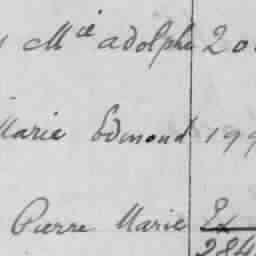 Mie adolphe 20
Marie Edmond 199
Pierre Marie
284